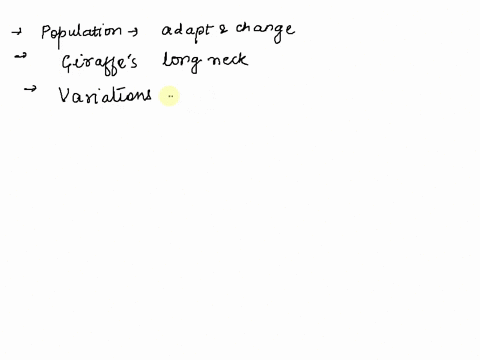 → Population → adapt & change
→ Giraffe's long neck
→ Variations